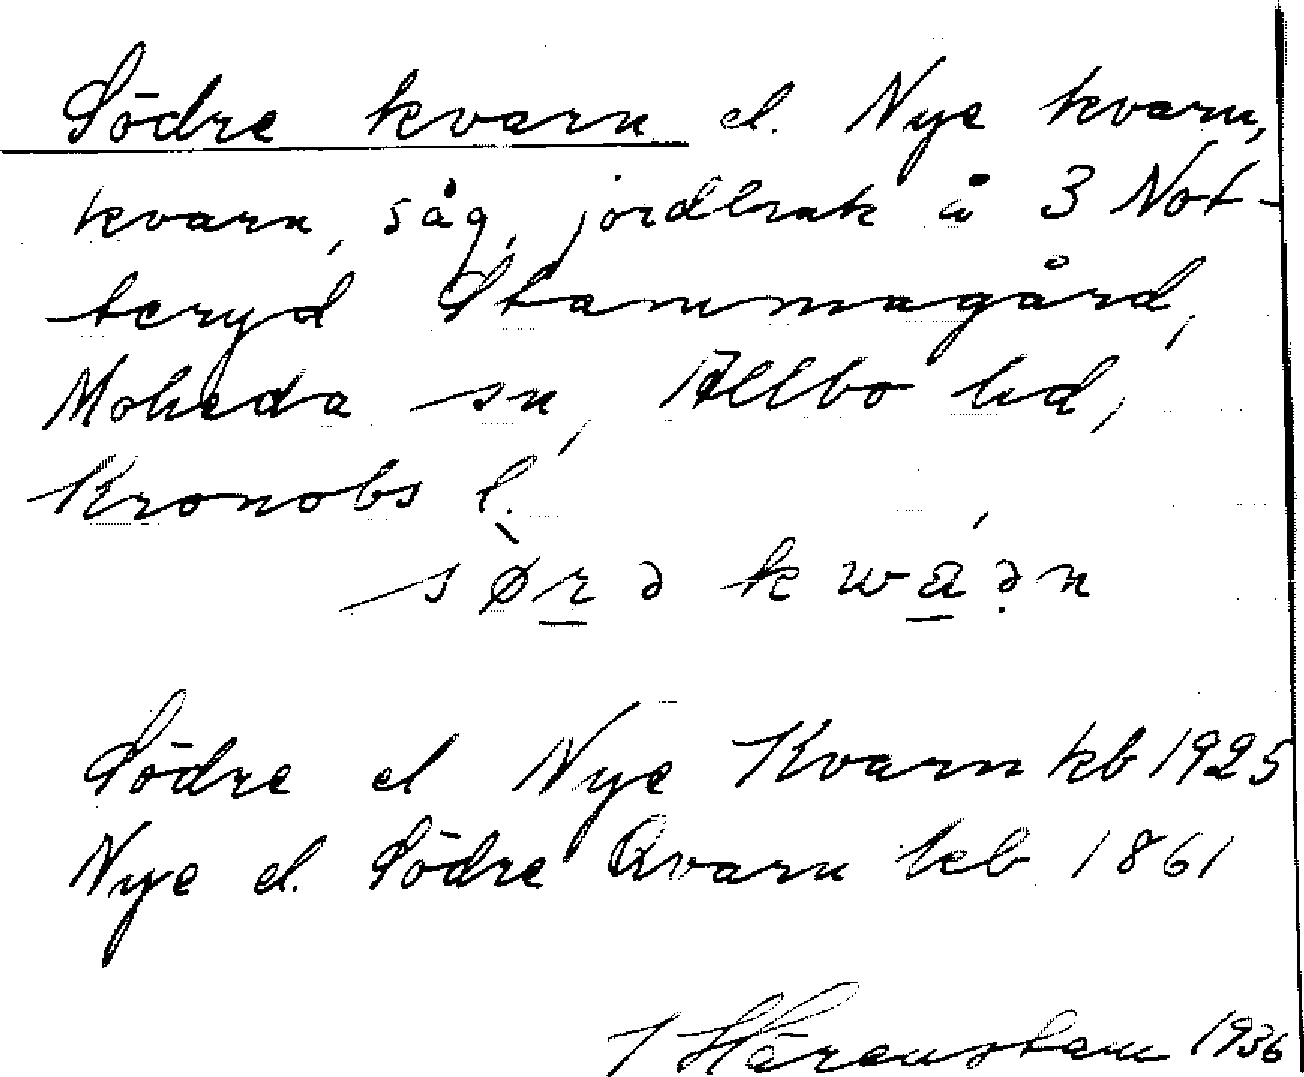 Södre kvarn el. Nye kvarn,
kvarn, såg, jordbruk å 3 Not-
teryd Stammagård,
Moheda sn, Allbo hd,
Kronobs l.
sø̀rə kwá̱ə̣n
Södre el Nye Kvarn kb 1925
Nye el. Södre Qvarn kb 1861
J Härenstam 1936